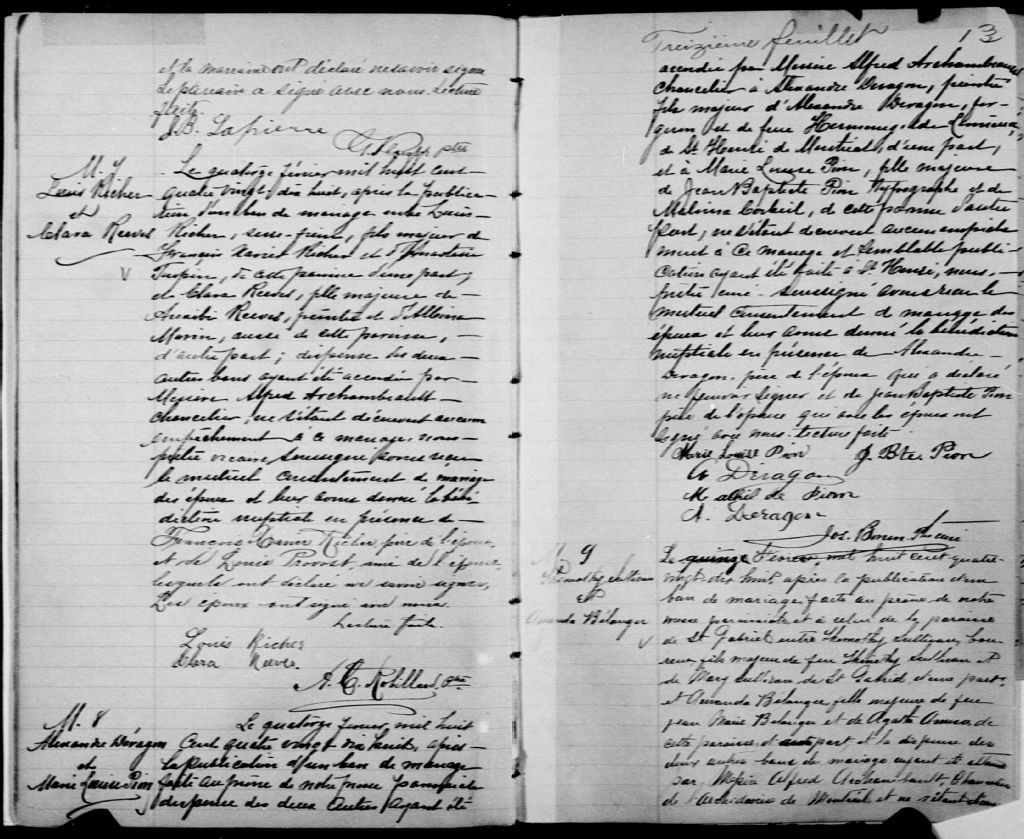 et la marraine ont déclaré ne savoir signer
Le parrain a signé avec nous. Lecture
faite.
J. B. Lapierre
ptre
M. 7
Louis Richer
et
Clara Reeves
Le quatorze février mil huit cent
quatre vingt dix huit, après la publica-
tion d'un ban de mariage entre Louis
Richer, serre-freins, fils majeur de
François Xavier Richer et d'Anastasie
Turpin, de cette paroisse d'une part,
et Clara Reeves, fille majeure de
Reeves, peintre et d'Albina
Morin, aussi de cette paroisse,
d'autre part; dispense des deux
autres bans ayant été accordée par
Messire Alfred Archambeault
chancelier, ne s'étant découvert aucun
empêchement à ce mariage, nous
prêtre vicaire, soussigné avons reçu
le mutuel consentement de mariage
des époux et leur avons donné la béné-
diction nuptiale en présence de
François Xavier Richer père de l'époux
et de Louis Provost, ami de l'épouse
lesquels ont déclaré ne savoir signer,
Les époux ont signé avec nous.
Lecture faite.
Louis Richer
Clara Reeves
A. C. Robillard, ptre
M. 8
Alexandre Déragon
et
Marie Louise Pion
Le quatorze février, mil huit
cent quatre vingt dix huit, après
la publication d'un ban de mariage
faite au prône de notre messe paroissiale
dispense des deux autres ayant été
Treizième feuillet 13
accordée par Messire Alfred Archambeault
chancelier à Alexandre Deragon, peintre
fils majeur d'Alexandre Deragon, for-
geron et de feue Hermine
de St Henri de Montréal, d'une part,
et à Marie Louise Pion, fille majeure
de Jean Baptiste Pion typographe et de
Malvina Corbeil, de cette paroisse d'autre
part, ne s'étant découvert aucun empêche
ment à ce mariage et semblable publi-
cation ayant été faite à St Henri, nous,
prêtre curé soussigné avons reçu le
mutuel consentement de mariage des
époux et leur avons donné la bénédiction
nuptiale en présence de Alexandre
Deragon, père de l'époux qui a déclaré
ne pouvoir signer et de Jean Baptiste Pion
père de l'épouse qui avec les époux ont
signé avec nous. Lecture faite
Marie Louise Pion J. Bte. Pion
A Déragon
M Pion
A. Deragon
Jos. Bonin Ptre curé
M. 9
Thimothy Sullivan
et
Amanda Bélanger
Le quinze Février, mil huit cent quatre-
vingt-dix huit, après la publication d'un
ban de mariage faite au prône de notre
messe paroissiale et à celui de la paroisse
de St Gabriel entre Thimothy Sullivan,
fils majeur de feu Thimothy Sullivan et
de Mary Sullivan de St Gabriel d'une part,
et Amanda Bélanger, fille majeure de feu
Jean Marie Bélanger et de Agathe
cette paroisse, d'autre part, et la dispense des
deux autres bans de mariage ayant été
par Messire Alfred Archambault, Chancelier
de l'Archidiocèse de Montréal et ne s'étant